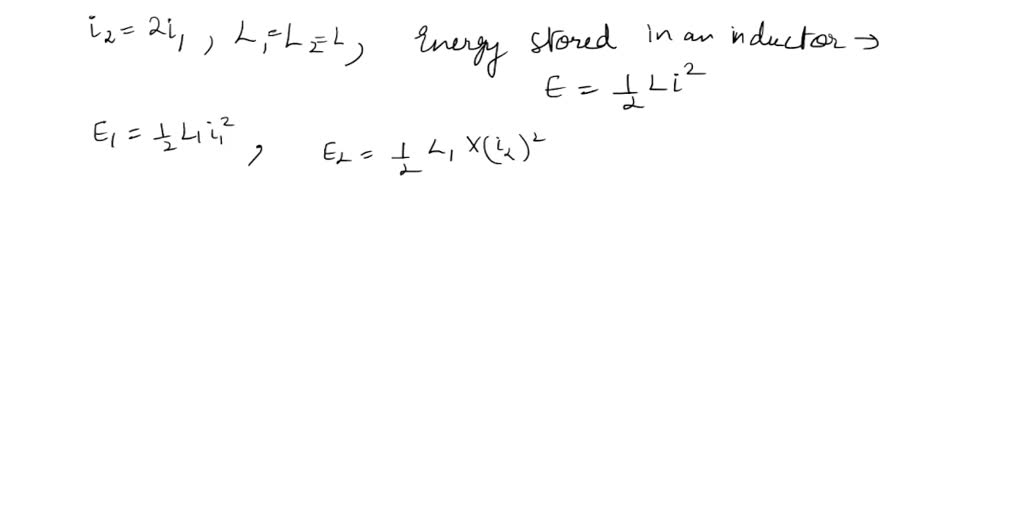 i₂ = 2i₁ , L₁ = L₂ = L , Energy stored in an inductor →
E = 1/2 L i²
E₁ = 1/2 L₁ i₁² , E₂ = 1/2 L₁ × (i₂)²